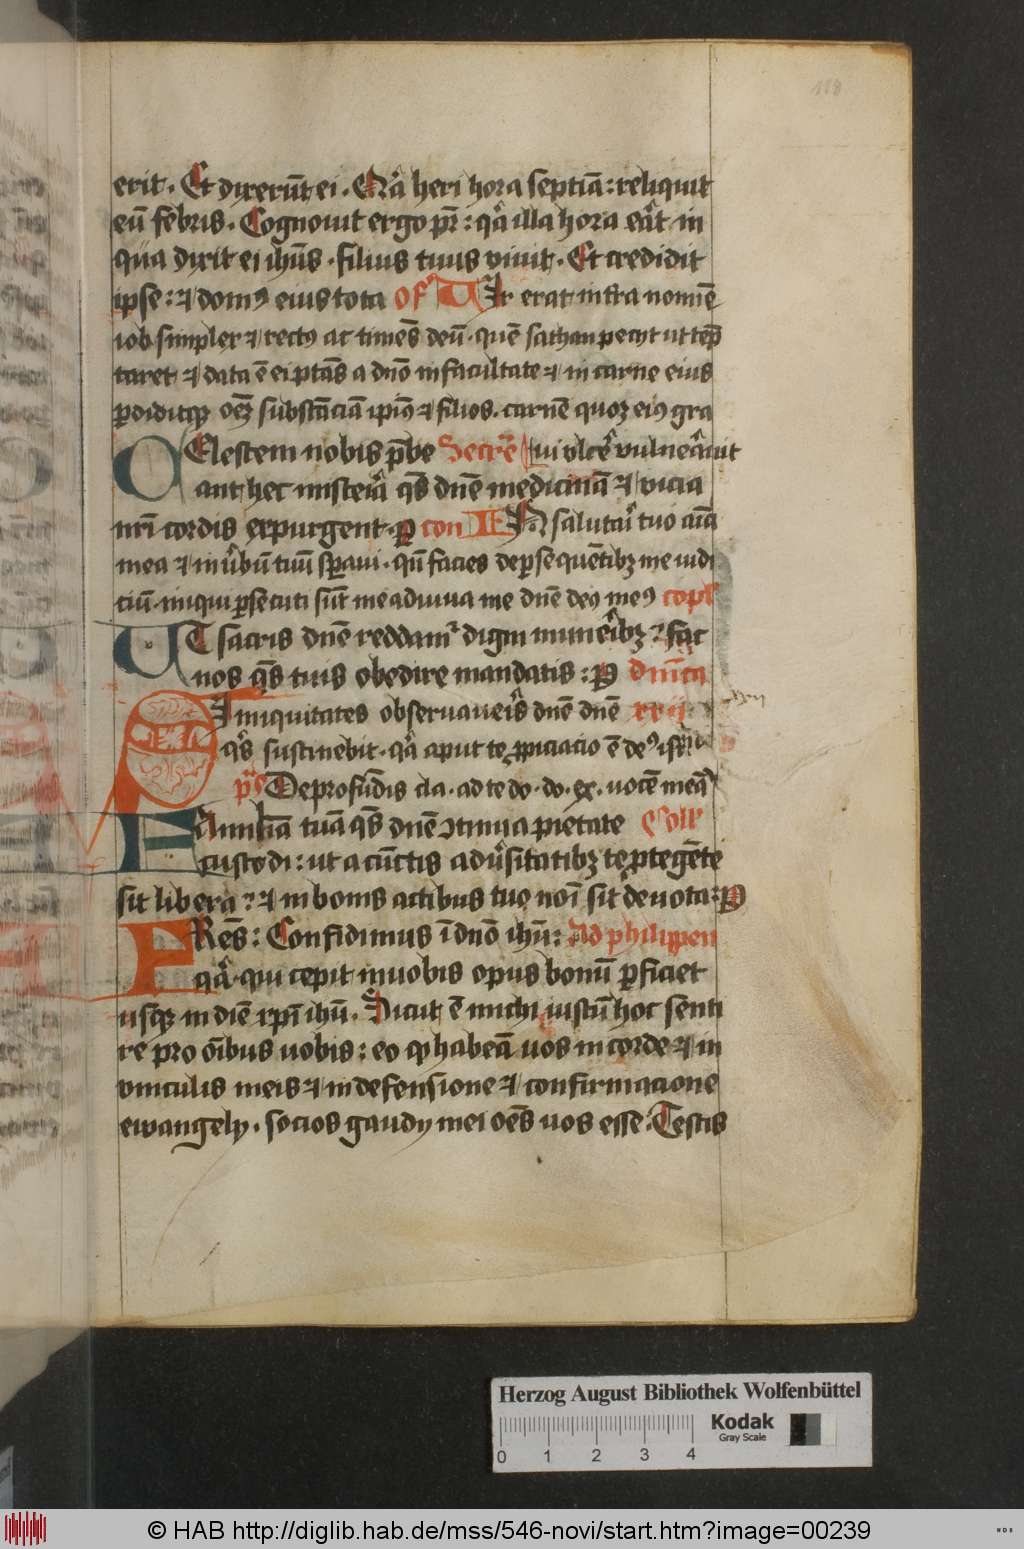 118
erit. Et dixerūt ei. Qr̄a heri hora septiā: reliquit
eū febris. Cognouit ergo pr̄: qr̄a illa hora erāt in
qua dixit ei ihūs. filius tuus viuit. Et credidit
ipse: ⁊ domꝰ eius tota Off Uir erat in tra nomīe
iob simplex ⁊ rectꝰ ac timēs deū. quē sathan pecijt ut tēp
taret ⁊ data ē ei ptās a dnō in facultate ⁊ in carne eius
ꝑdiditqꝫ oēꝫ substāciā ipiꝰ ⁊ filios. carnē quoꝫ eiꝰ gra
ui vlcēr vulneāuit
CElestem nobis p̄be Secrē
ant hec misteria qs̄ dnē medicinā ⁊ vicia
nr̄i cordis expurgent. ꝑ con IN salutari tuo aīa
mea ⁊ in ūbū tuū sp̄aui. qn̄ facies de ꝑsequētibꝫ me iudi
ciū. iniqui ꝑsecuti sūt me adiuua me dnē deꝰ meꝰ copl
UT sacris dnē reddamꝰ digni muneribꝫ? fac
nos qs̄ tuis obedire mandatis: ꝑ dn̄ica
SI iniquitates obseruaueris dnē dnē xxij
qs̄ sustinebit. qr̄a aput te ꝓpiciacio ē deꝰ isrl
ps̄ De profūdis cla. ad te do. do. ex. uocē meā
FAmiliā tuā qs̄ dnē ꝯtinua pietate Coll
custodi: ut a cūctis adūsitatibꝫ te ꝓtegēte
sit libera? ⁊ in bonis actibus tuo noī sit deuota: ꝑ
FRēs: Confidimus ī dnō ihū: Ad philippen
qr̄a. qui cepit in uobis opus bonū ꝑficiet
usqꝫ in diē xp̄i ihū. Sicut ē michi iustū hoc senti
re pro oībus uobis: eo qꝙ habeā uos in corde ⁊ in
vinculis meis ⁊ in defensione ⁊ confirmacione
ewangely. socios gaudy mei oēs uos esse. Testis
Herzog August Bibliothek Wolfenbüttel
Kodak
Gray Scale
0 1 2 3 4
© HAB http://diglib.hab.de/mss/546-novi/start.htm?image=00239